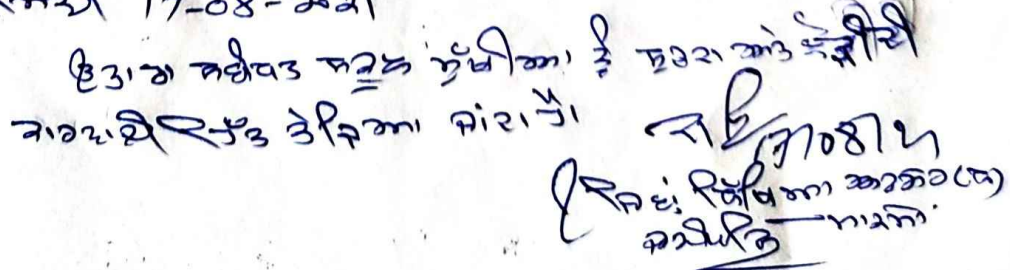 ਮਿਤੀ 17-08-2021
ਉਤਾਰਾ ਸਬੰਧਤ ਸਕੂਲ ਮੁੱਖੀਆਂ ਨੂੰ ਸੂਚਨਾ ਅਤੇ ਲੋੜੀਂਦੀ
ਕਾਰਵਾਈ ਹਿੱਤ ਭੇਜਿਆ ਜਾਂਦਾ ਹੈ।
17/08/21
ਜਿਲ੍ਹਾ ਸਿੱਖਿਆ ਅਫਸਰ